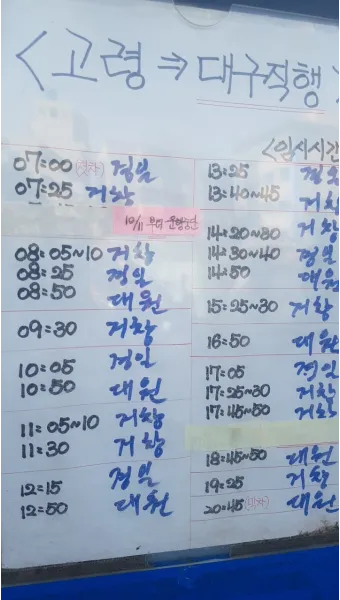 <고령⇒대구직행>
<임시시간
07:00 (첫차) 경일
07:25 거창
10/11 부터 운행중단
08:05~10 거창
08:25 경일
08:50 대원
09:30 거창
10:05 경일
10:50 대원
11:05~10 거창
11:30 거창
12:15 경일
12:50 대원
13:25 경일
13:40~45 거창
14:20~30 거창
14:30~40 경일
14:50 대원
15:25~30 거창
16:50 대원
17:05 경일
17:25~30 거창
17:45~50 거창
18:45~50 대원
19:25 거창
20:45 (막차) 대원